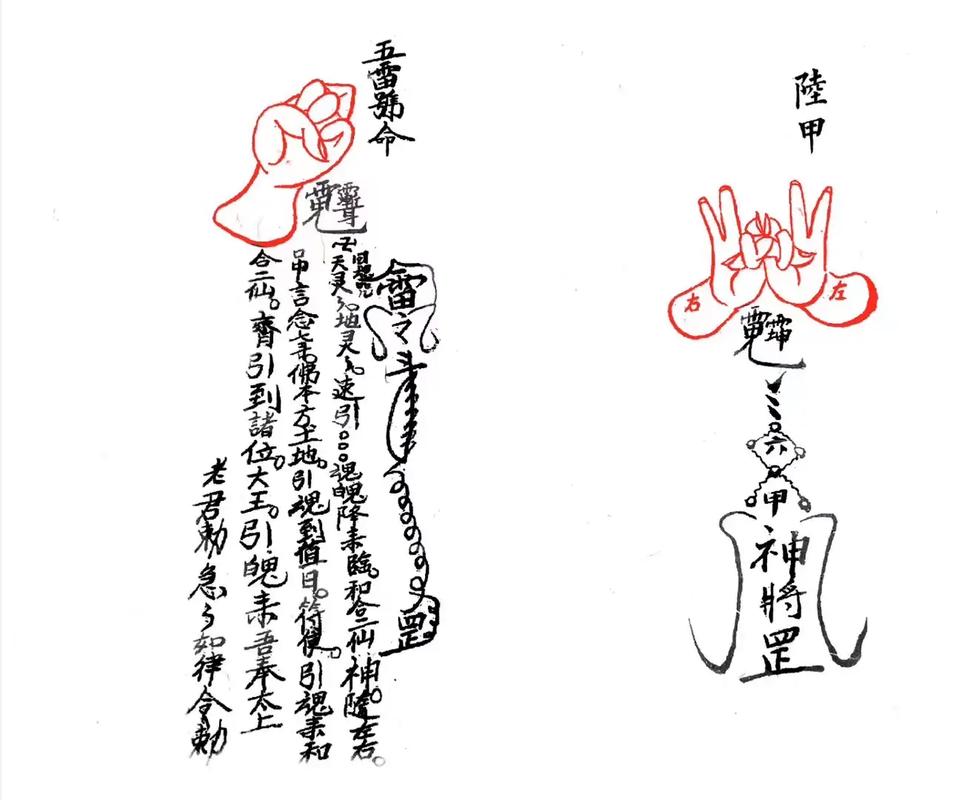 陸甲
右
左
六
甲
神將罡
五雷號命
雷令
罡
天灵灵地灵灵。速引。。。魂魄降来臨。和合二仙神。隨左右。
言念七佛本方土地。引魂到值日。符使。引魂来和
合二仙。齊引到諸位。大王。引魄来吾奉太上
老君勅急急如律令勅